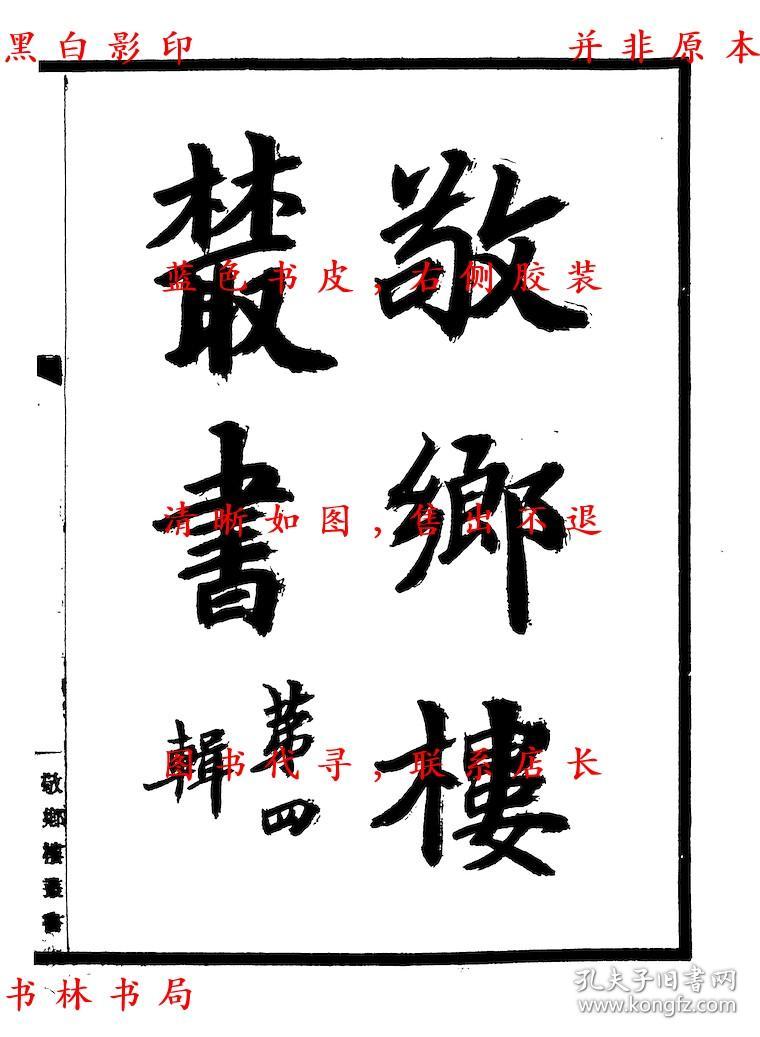 黑白影印
并非原本
敬鄉樓
叢書
第四
輯
蓝色书皮，右侧胶装
清晰如图，售出不退
图书代寻，联系店长
敬鄉樓叢書
书林书局
孔夫子旧书网
www.kongfz.com